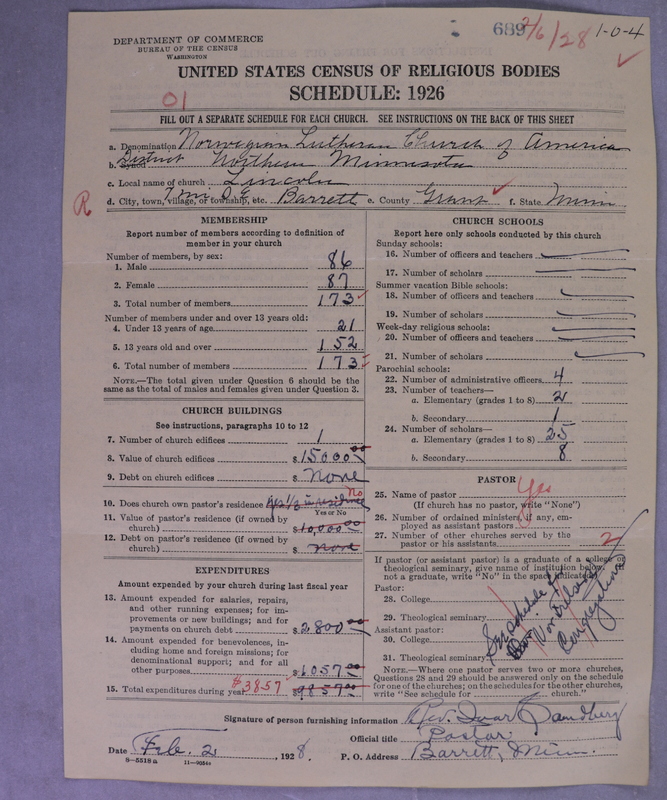 DEPARTMENT OF COMMERCE
BUREAU OF THE CENSUS
WASHINGTON
689 2/6/28 1-0-4
UNITED STATES CENSUS OF RELIGIOUS BODIES
SCHEDULE: 1926
01
FILL OUT A SEPARATE SCHEDULE FOR EACH CHURCH. SEE INSTRUCTIONS ON THE BACK OF THIS SHEET
a. Denomination Norwegian Lutheran Church of America
b. Synod District Northern Minnesota
c. Local name of church Lincoln
R
d. City, town, village, or township, etc. Barrett e. County Grant f. State Minn
MEMBERSHIP
Report number of members according to definition of
member in your church
Number of members, by sex:
1. Male 86
2. Female 87
3. Total number of members 173
Number of members under and over 13 years old:
4. Under 13 years of age 21
5. 13 years old and over 152
6. Total number of members 173
NOTE.—The total given under Question 6 should be
same as the total of males and females given under Question 3.
CHURCH BUILDINGS
See instructions, paragraphs 10 to 12
7. Number of church edifices 1
8. Value of church edifices $15000.00
9. Debt on church edifices $ None
10. Does church own pastor's residence Yes 1/2 in residence No
Yes or No
11. Value of pastor's residence (if owned by
church) $10,000.00
12. Debt on pastor's residence (if owned by
church) $ none
EXPENDITURES
Amount expended by your church during last fiscal year
13. Amount expended for salaries, repairs,
and other running expenses; for im-
provements or new buildings; and for
payments on church debt $2800.00
14. Amount expended for benevolences,
including home and foreign missions; for
denominational support; and for all
other purposes $1057.00
15. Total expenditures during year $3857 $9857.00
CHURCH SCHOOLS
Report here only schools conducted by this church
Sunday schools:
16. Number of officers and teachers
17. Number of scholars
Summer vacation Bible schools:
18. Number of officers and teachers
19. Number of scholars
Week-day religious schools:
20. Number of officers and teachers
21. Number of scholars
Parochial schools:
22. Number of administrative officers 4
23. Number of teachers—
a. Elementary (grades 1 to 8) 2
b. Secondary 1
24. Number of scholars—
a. Elementary (grades 1 to 8) 25
b. Secondary 8
PASTOR
25. Name of pastor Yes
(If church has no pastor, write "None")
26. Number of ordained ministers, if any, em-
ployed as assistant pastors 0
27. Number of other churches served by the
pastor or his assistants 2
If pastor (or assistant pastor) is a graduate of a college or
theological seminary, give name of institution below;
not a graduate, write "No" in the space indicated
Pastor:
28. College
29. Theological seminary
Assistant pastor:
30. College
31. Theological seminary
See schedule for
Congregation
NOTE.—Where one pastor serves two or more churches,
Questions 28 and 29 should be answered only on the schedule
for one of the churches; on the schedules for the other churches,
write "See schedule for church."
Signature of person furnishing information Rev. Ivar Sandberg
Official title Pastor
Date Feb. 2, 1928. P. O. Address Barrett, Minn.
8—5518 a 11—9054